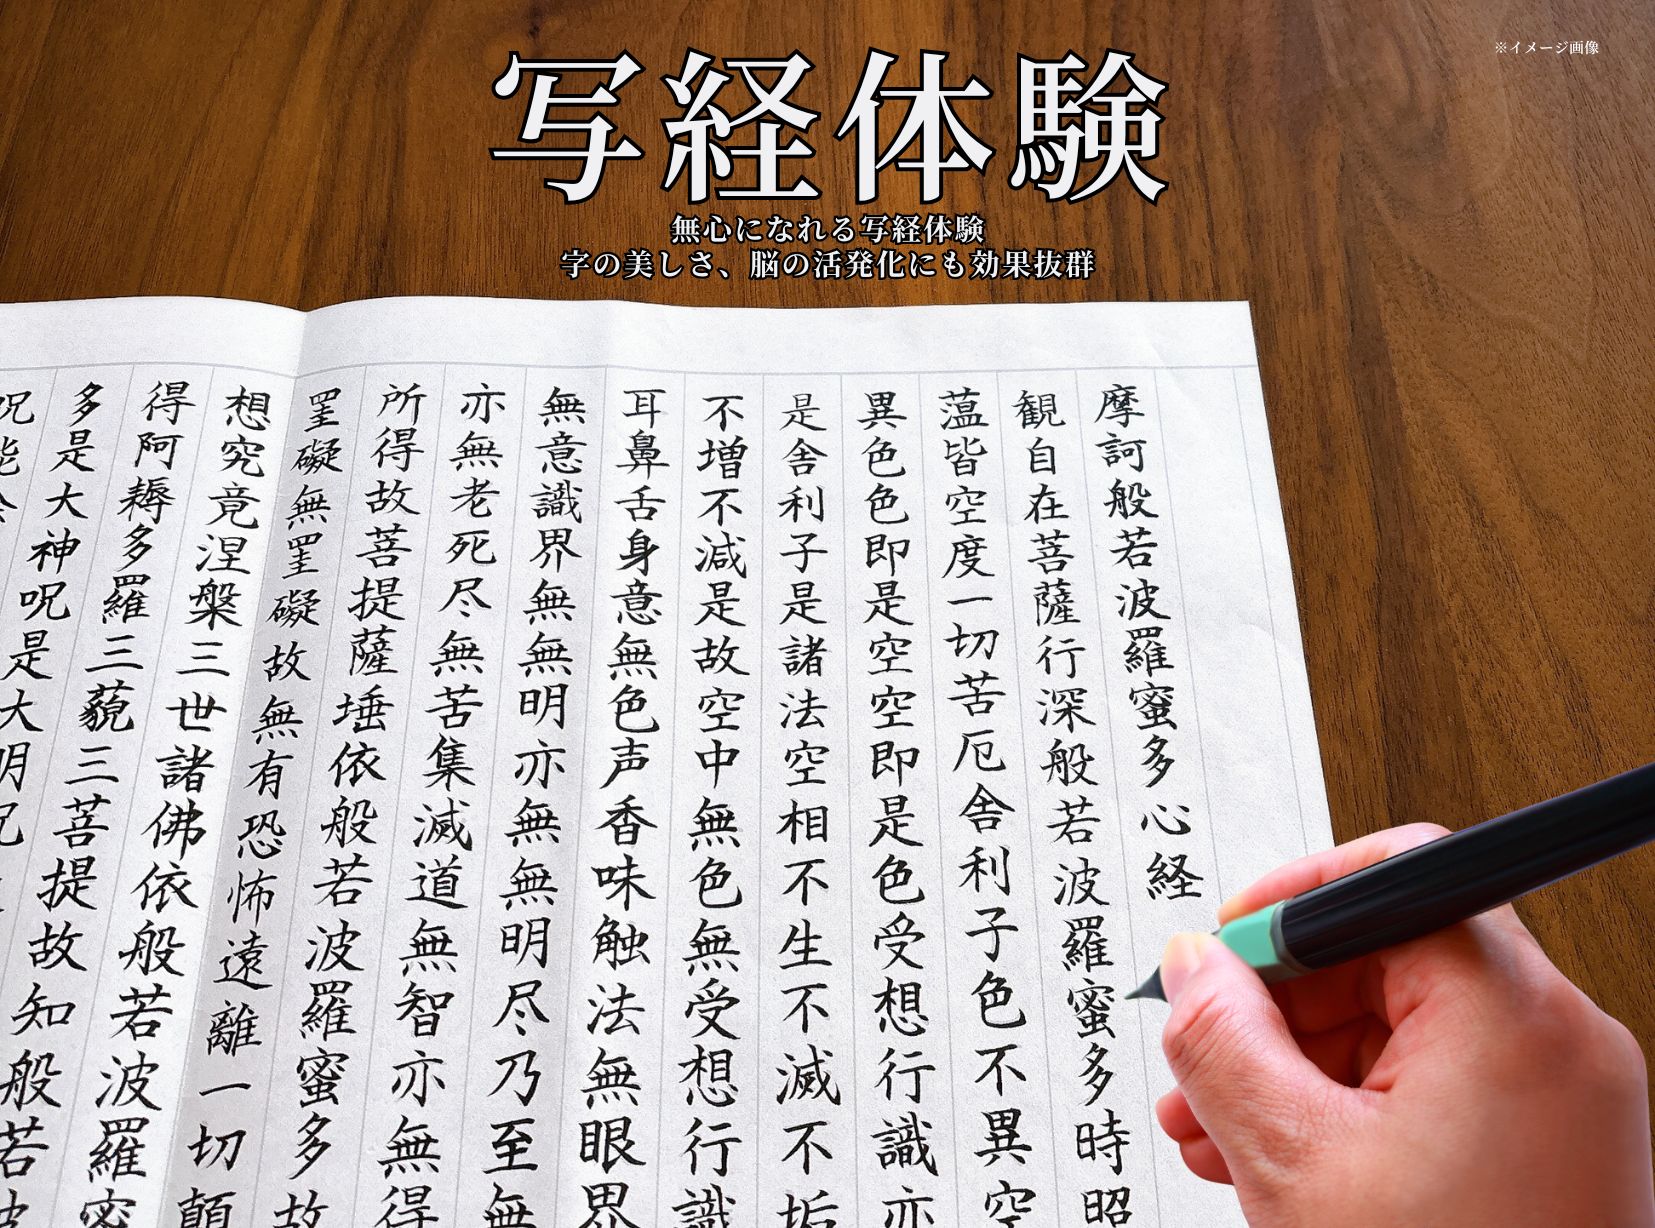 ※イメージ画像
写経体験
無心になれる写経体験
字の美しさ、脳の活発化にも効果抜群
摩訶般若波羅蜜多心経
観自在菩薩行深般若波羅蜜多時照
蘊皆空度一切苦厄舎利子色不異空
異色色即是空空即是色受想行識亦
是舎利子是諸法空相不生不滅不垢
不増不減是故空中無色無受想行識
耳鼻舌身意無色声香味触法無眼界
無意識界無無明亦無無明尽乃至無
亦無老死尽無苦集滅道無智亦無得
所得故菩提薩埵依般若波羅蜜多故
罣礙無罣礙故無有恐怖遠離一切顛
想究竟涅槃三世諸佛依般若波羅蜜
得阿耨多羅三藐三菩提故知般若波
多是大神呪是大明呪
呪能